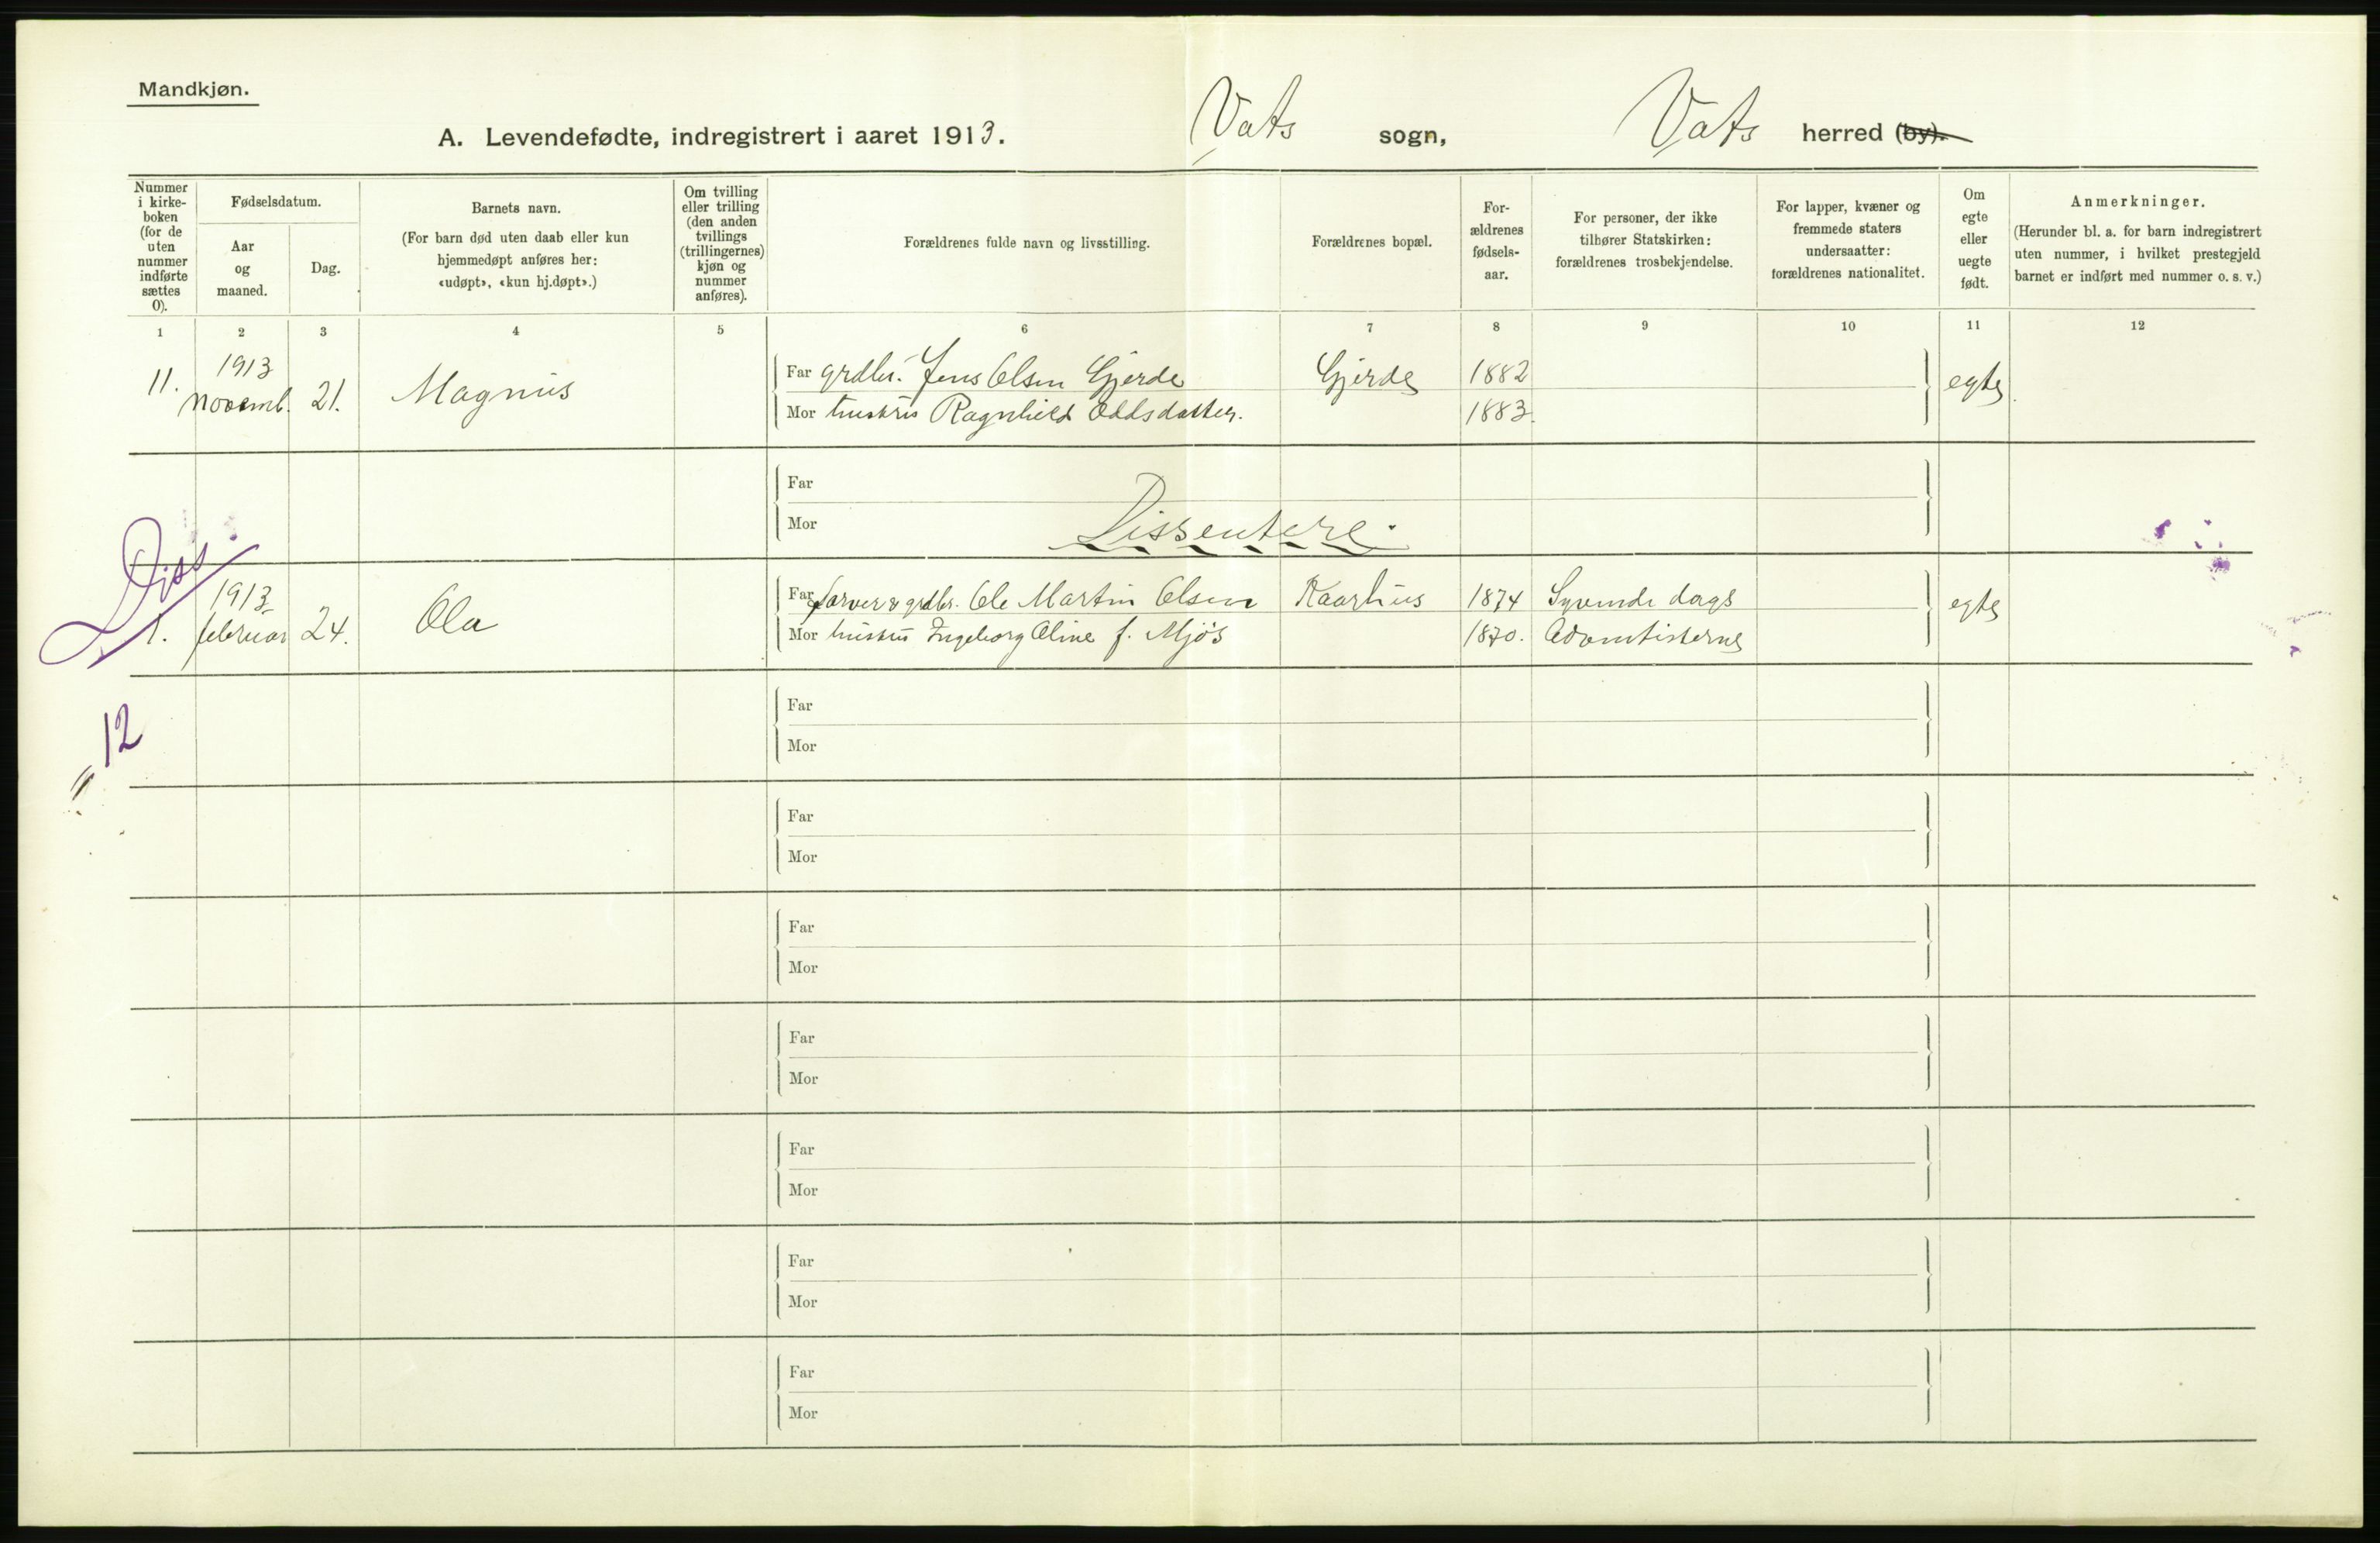 Mandkjøn.
A. Levendefødte, indregistrert i aaret 1913. Vats sogn, Vats herred (by).
Nummer i kirke-boken (for de uten nummer indførte sættes 0).
Fødselsdatum.
Aar og maaned.
Dag.
Barnets navn.
(For barn død uten daab eller kun hjemmedøpt anføres her: «udøpt», «kun hj.døpt».)
Om tvilling eller trilling (den anden tvillings (trillingernes) kjøn og nummer anføres).
Forældrenes fulde navn og livsstilling.
Forældrenes bopæl.
For-ældrenes fødsels-aar.
For personer, der ikke tilhører Statskirken: forældrenes trosbekjendelse.
For lapper, kvæner og fremmede staters undersaatter: forældrenes nationalitet.
Om egte eller uegte født.
Anmerkninger.
(Herunder bl. a. for barn indregistrert uten nummer, i hvilket prestegjeld barnet er indført med nummer o. s. v.)
1 2 3 4 5 6 7 8 9 10 11 12
11. 1913 novemb. 21. Magnus Far grdbr. Jens Olsen Gjerde Gjerde 1882 egte
Mor hustru Ragnhild Oddsdatter. 1883.
Far
Mor Dissentere.
Diss
1. 1913 februar 24. Ola Far farver & grdbr. Ole Martin Olsen Kaarhus 1874 Syvende dags egte
Mor hustru Ingeborg Oline f. Mjøs 1870. Adventisterne
12
Far
Mor
Far
Mor
Far
Mor
Far
Mor
Far
Mor
Far
Mor
Far
Mor